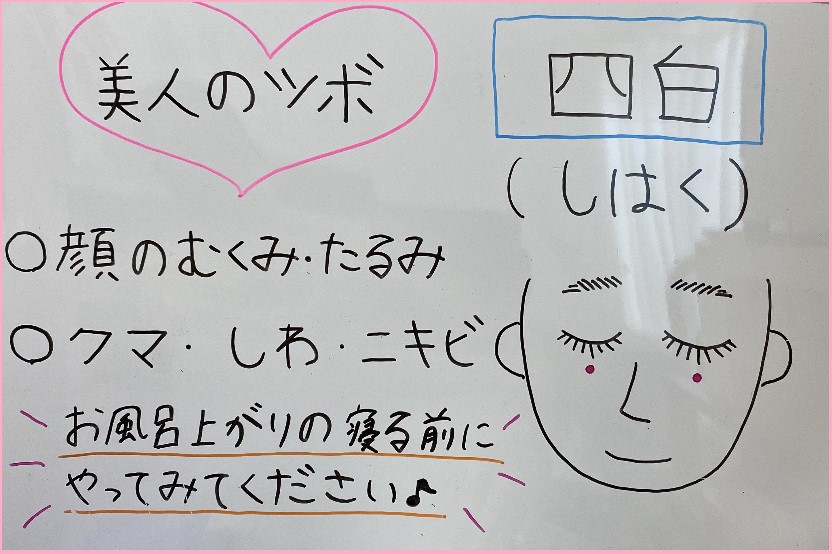 美人のツボ
四白
(しはく)
○顔のむくみ・たるみ
○クマ・しわ・ニキビ
お風呂上がりの寝る前に
やってみてください♪